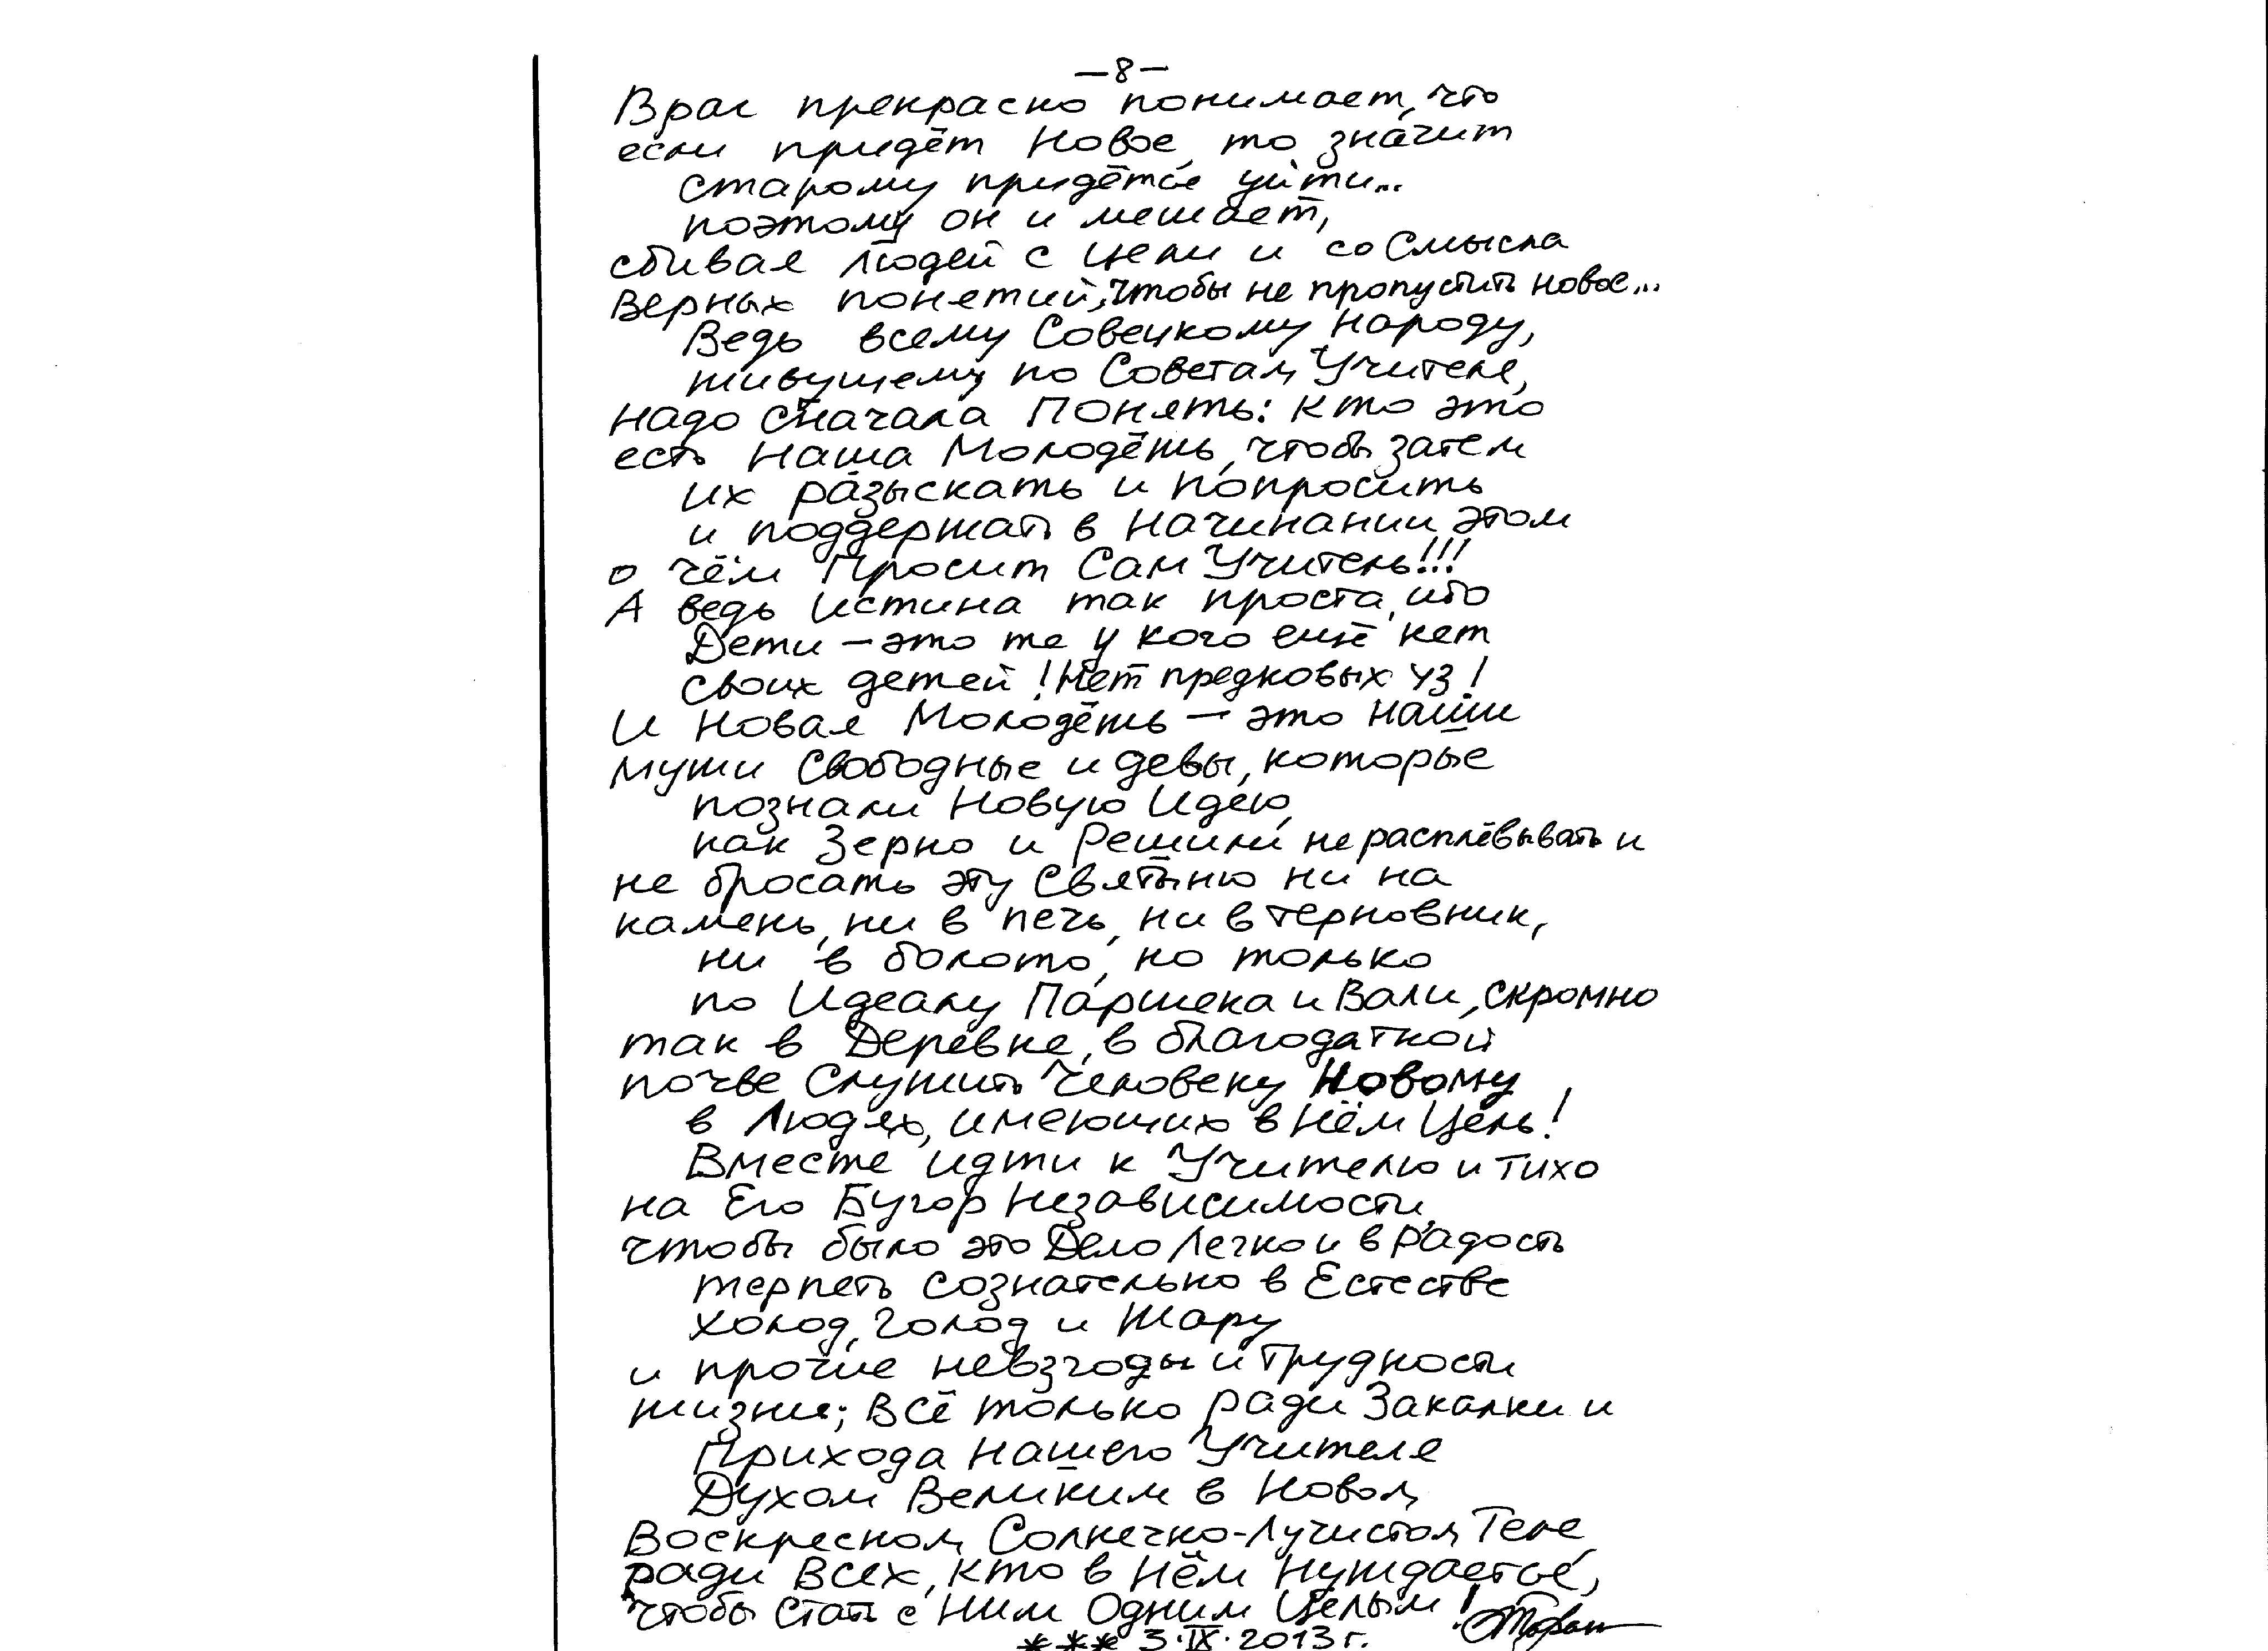 —8—
Враг прекрасно понимает, что
если придёт Новое, то значит
старому придётся уйти...
поэтому он и мешает,
сбивая людей с цели и со Смысла
Верных понятий, чтобы не пропустить новое...
Ведь всему Совецкому Народу,
живущему по Советам Учителя,
надо сначала Понять: кто это
есть Наша Молодёжь, чтобы затем
их разыскать и попросить
и поддержать в Начинании этом
о чём Просит Сам Учитель!!!
А ведь Истина так проста, ибо
Дети — это те у кого ещё нет
своих детей! Нет предковых уз!
И Новая Молодёжь — это Наши
мужи Свободные и девы, которые
познали Новую Идею,
как Зерно и Решили не расплёвывать и
не бросать эту Святыню ни на
камень, ни в печь, ни в терновник,
ни в болото, но только
по Идеалу Паршека и Вали, скромно
так в Деревне, в благодатной
почве Служить Человеку Новому
в Людях, имеющих в Нём Цель!
Вместе идти к Учителю и тихо
на Его Бугор Независимости,
чтобы было это Дело Легко и в Радость
терпеть сознательно в Естестве
холод, голод и Жару
и прочие невзгоды и трудности
жизни; Всё только ради Закалки и
Прихода Нашего Учителя
Духом Великим в Новом,
Воскресном, Солнечно-Лучистом Теле
ради Всех, кто в Нём Нуждается,
чтобы Стать с Ним Одним Целым!
*** 3·IX·2013г.